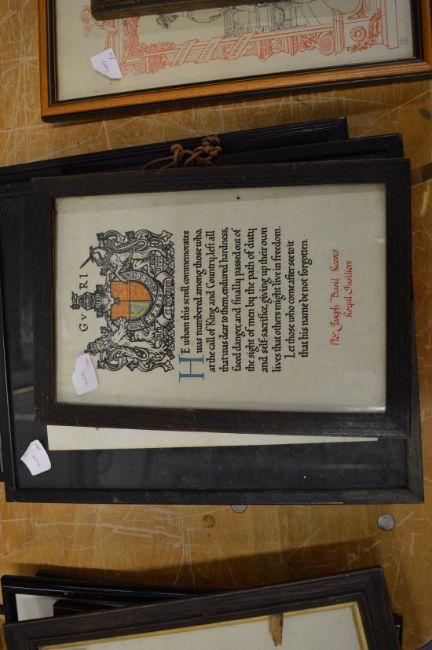 GVRI
HE whom this scroll commemorates
was numbered among those who,
at the call of King and Country, left all
that was dear to them, endured hardness,
faced danger, and finally passed out of
the sight of men by the path of duty
and self-sacrifice, giving up their own
lives that others might live in freedom.
Let those who come after see to it
that his name be not forgotten.
Pte. Joseph Basil Reeves
Royal Fusiliers